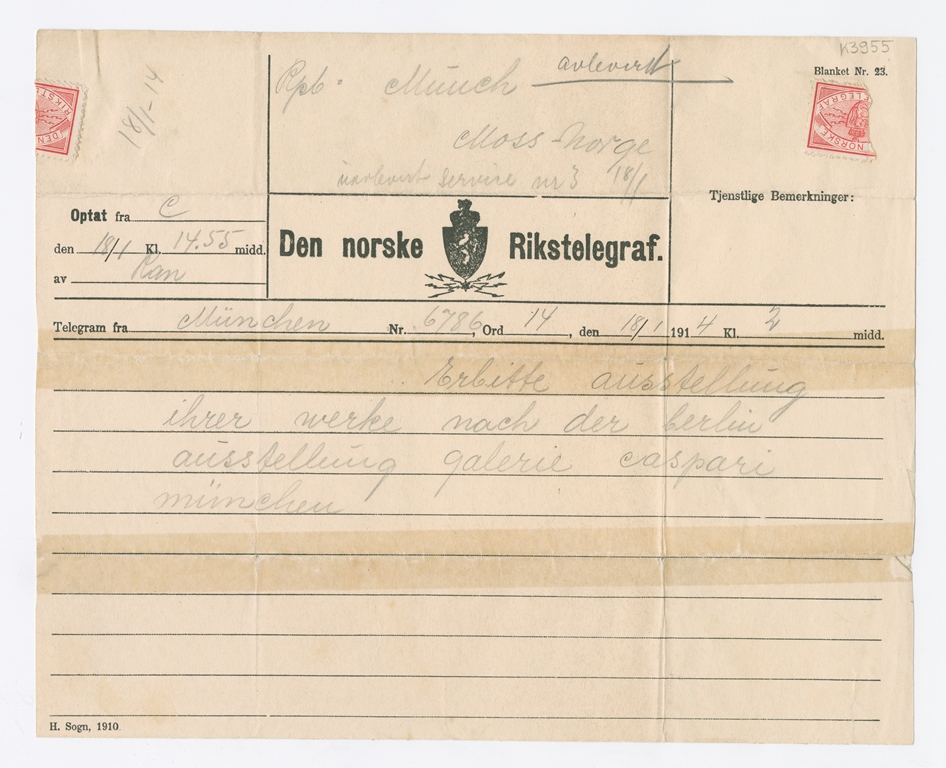 K3955
Blanket Nr. 23.
18/1-14
Rpb = Münch avlevert
Moss-Norge
uavlevert service nr 3 18/1
DEN
RIKSTE
NORSKE
LEGRAF
Tjenstlige Bemerkninger:
Optat fra C
den 18/1 Kl. 14.55 midd.
av Ran
Den norske Rikstelegraf.
Telegram fra München Nr. 6786, Ord 14, den 18/1 1914 Kl. 2 midd.
Erbitte ausstellung
ihrer werke nach der berlin
ausstellung galerie caspari
münchen
H. Sogn, 1910.